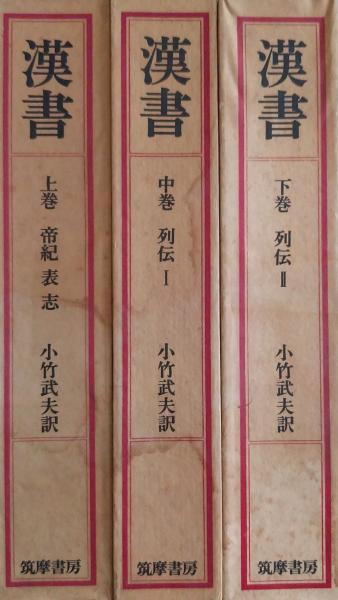 漢書
上巻 帝紀 表 志
小竹武夫訳
筑摩書房
漢書
中巻 列伝 I
小竹武夫訳
筑摩書房
漢書
下巻 列伝 II
小竹武夫訳
筑摩書房